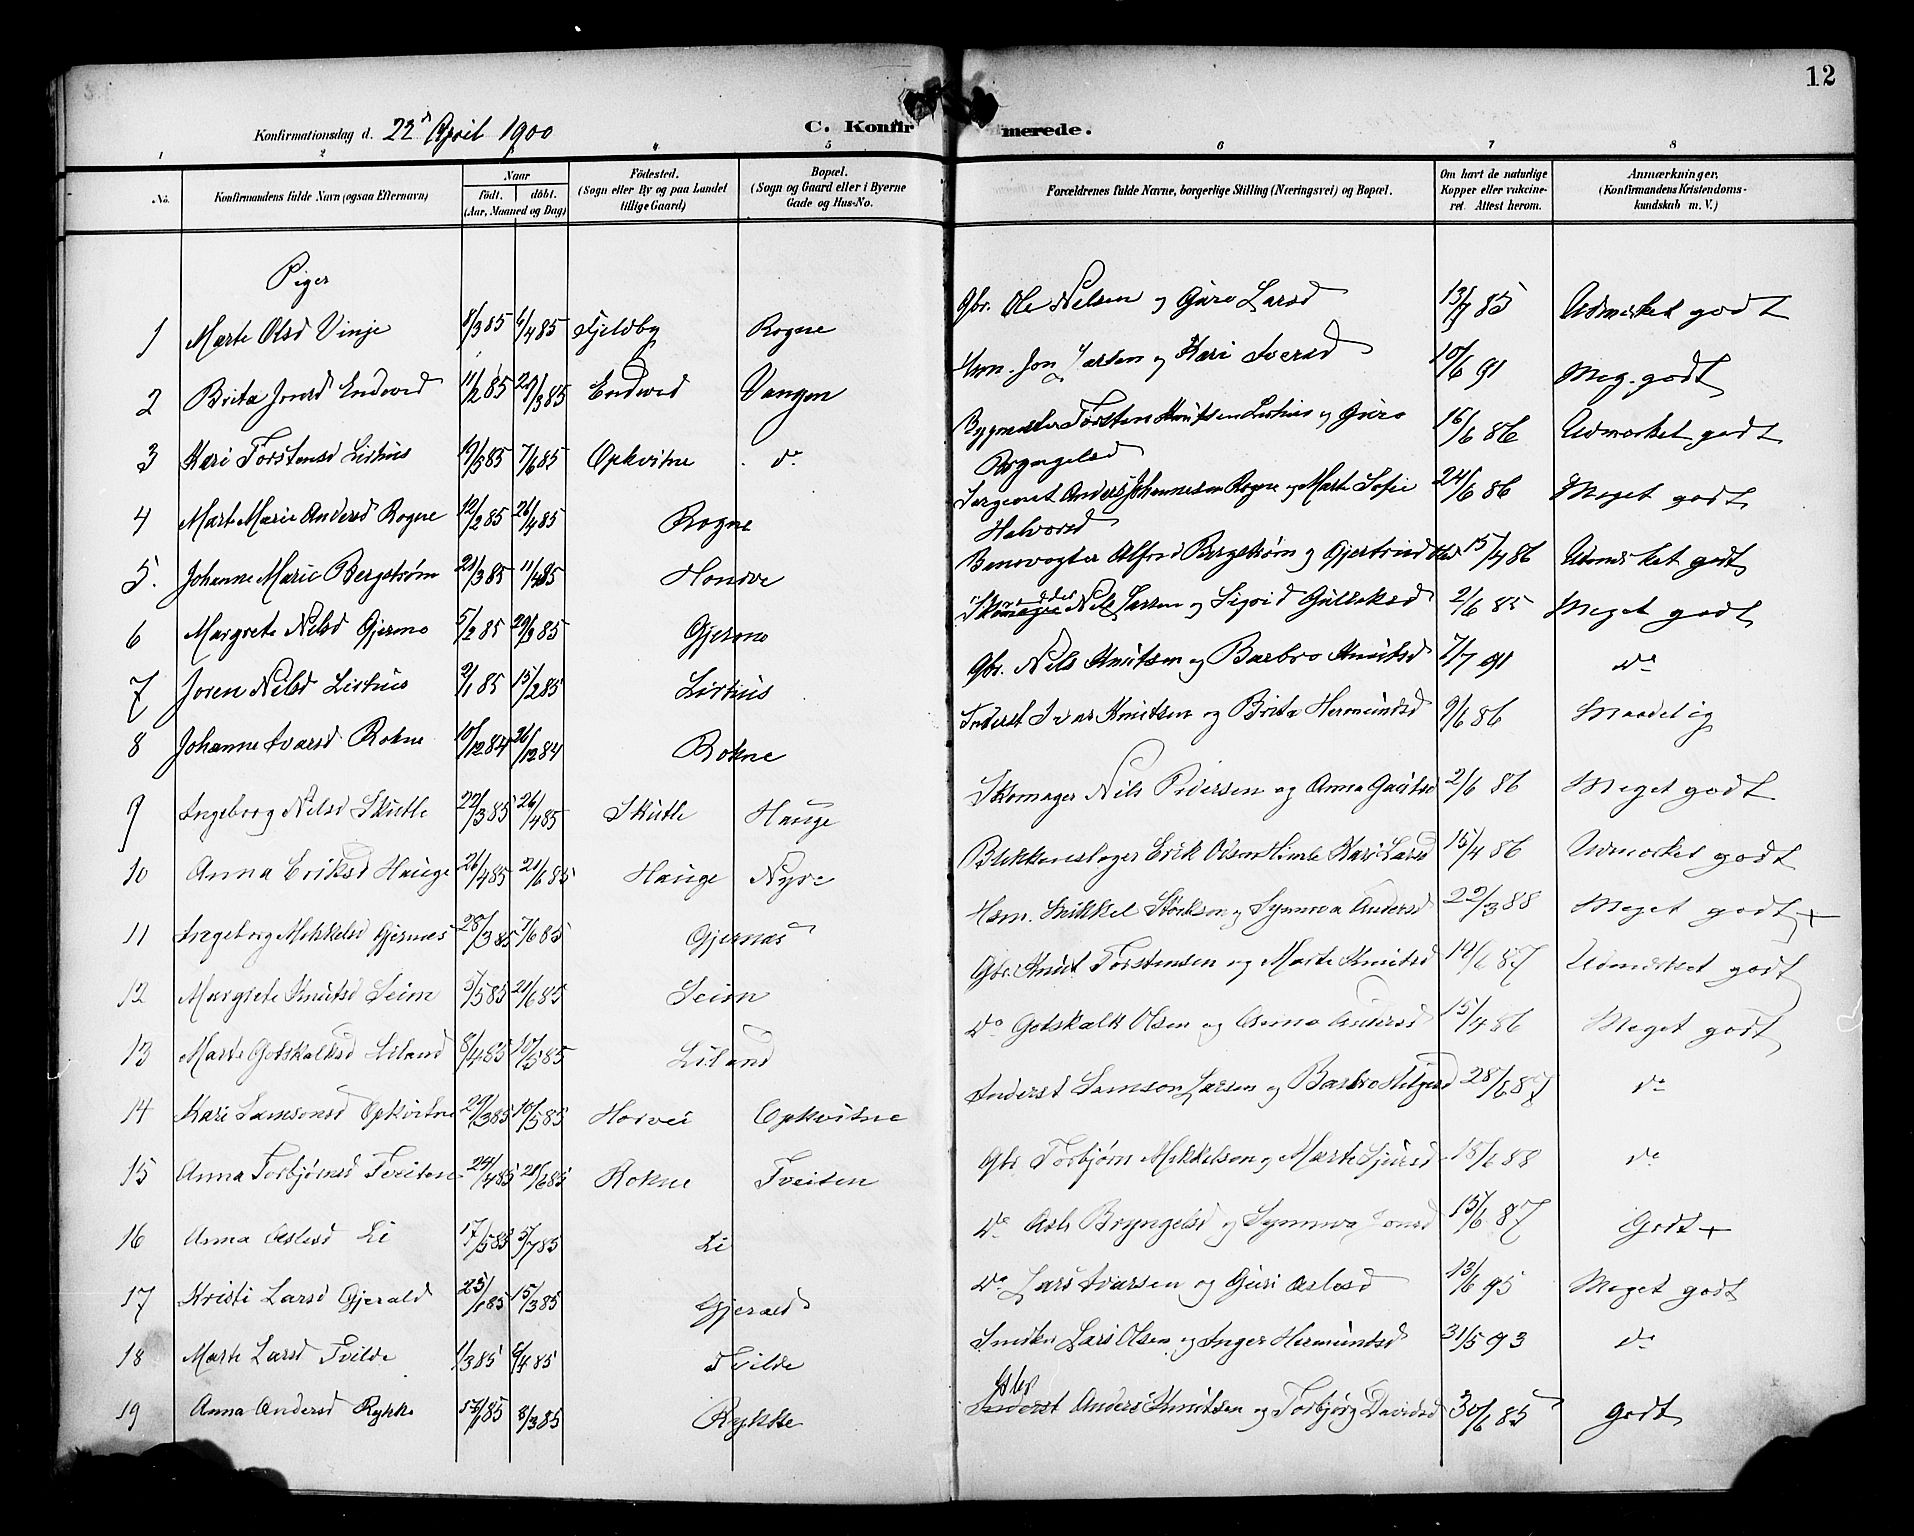 12
Konfirmationsdag d. 22d April 1900
C. Konfirmerede.
1 2 3 4 5 6 7 8
No. Konfirmandens fulde Navn (ogsaa Efternavn) Naar født. døbt. (Aar, Maaned og Dag) Fødested. (Sogn eller By og paa Landet tillige Gaard) Bopæl. (Sogn og Gaard eller i Byerne Gade og Hus-No. Forældrenes fulde Navne, borgerlige Stilling (Næringsvei) og Bopæl. Om havt de naturlige Kopper eller vakcineret. Attest herom. Anmærkninger. (Konfirmandens Kristendomskundskab m. V.)
Piger
1 Marte Olsd Vinje 8/3 85 6/4 85 Fjeldby Rogne Gbr. Ole Nelsen og Guro Larsd 13/7 85 Udmerket godt
2 Brita Jonsd Endeved 11/2 85 29/3 85 Endeved Vangen Jon Larsen og Kari Iversd 10/6 91 Meg. godt
3 Kari Torstensd Lirhus 19/5 85 7/6 85 Opkvitne do Bygmester Torsten Knutsen Lirhus og Guro
Bryngelsd 16/6 86 Udmerket godt
4 Marte Marie Andersd Rogne 12/2 85 26/4 85 Rogne Sargeant Anders Johannesen Rogne og Marte Sofie
Halvorsd 24/6 86 Meget godt
5. Johanne Marie Bergstrøm 21/3 85 11/4 85 Hondve Banevogter Alfred Bergstrøm og Gjertrud 15/4 86 Udmerket godt
6 Margrete Nilsd Gjermo 5/2 85 29/3 85 Gjermo Nils Larsen og Sigrid Gulleksd 2/6 85 Meget godt
7 Joren Nilsd Lirhus 9/1 85 15/2 85 Lirhus Gbr. Nils Knutsen og Barbro Knutsd 7/7 91 do
8 Johanne Ivarsd Rokne 10/12 84 26/12 84 Rokne Inderst Ivar Knutsen og Brita Hermundsd 9/6 86 Maadelig
9 Ingeborg Nilsd Skutle 22/3 85 26/4 85 Skutle Hauge Skomager Nils Pedersen og Anna 2/6 86 Meget godt
10 Anna Eriksd Hauge 26/4 85 21/6 85 Hauge Nyre Blikkenslager Erik Olsen Himle Kari Larsd 15/4 86 Udmerket godt
11 Ingeborg Mikkelsd Gjernes 28/3 85 7/6 85 Gjernes Hsm. Mikkel Størksen og Synneva Andersd 22/3 88 Meget godt +
12 Margrete Knutsd Seim 5/5 85 21/6 85 Seim Gbr. Knut Torstensen og Marte Knutsd 14/6 87 Udmerket godt
13 Marte Gotskalksd Liland 8/4 85 10/5 85 Liland do Gotskalk Olsen og Anna Andersd 15/4 86 Meget godt
14 Kari Samsonsd Opkvitne 29/3 85 10/5 85 Horvei Opkvitne Inderst Samson Larsen og Barbro 28/6 87 do
15 Anna Torbjørnsd Tveiten 24/4 85 21/6 85 Rokne Tveiten Gbr Torbjørn Mikkelsen og Marte Sjursd 18/6 88 do
16 Anna Aslesd Li 17/5 85 5/7 85 Li do Asle Bryngelsd og Synneva Jonsd 15/6 87 Godt +
17 Kristi Larsd Gjerald 25/1 85 15/3 85 Gjerald do Lars Ivarsen og Guri Aslesd 13/6 95 Meget godt
18 Marte Larsd Tvilde 1/3 85 6/4 85 Tvilde Lars Olsen og Inger Hermundsd 31/5 93 do
19 Anna Andersd Rykke 8/3 85 Rykke Inderst Anders Knutsen og Torbjørg Davidsd 30/6 85 Godt